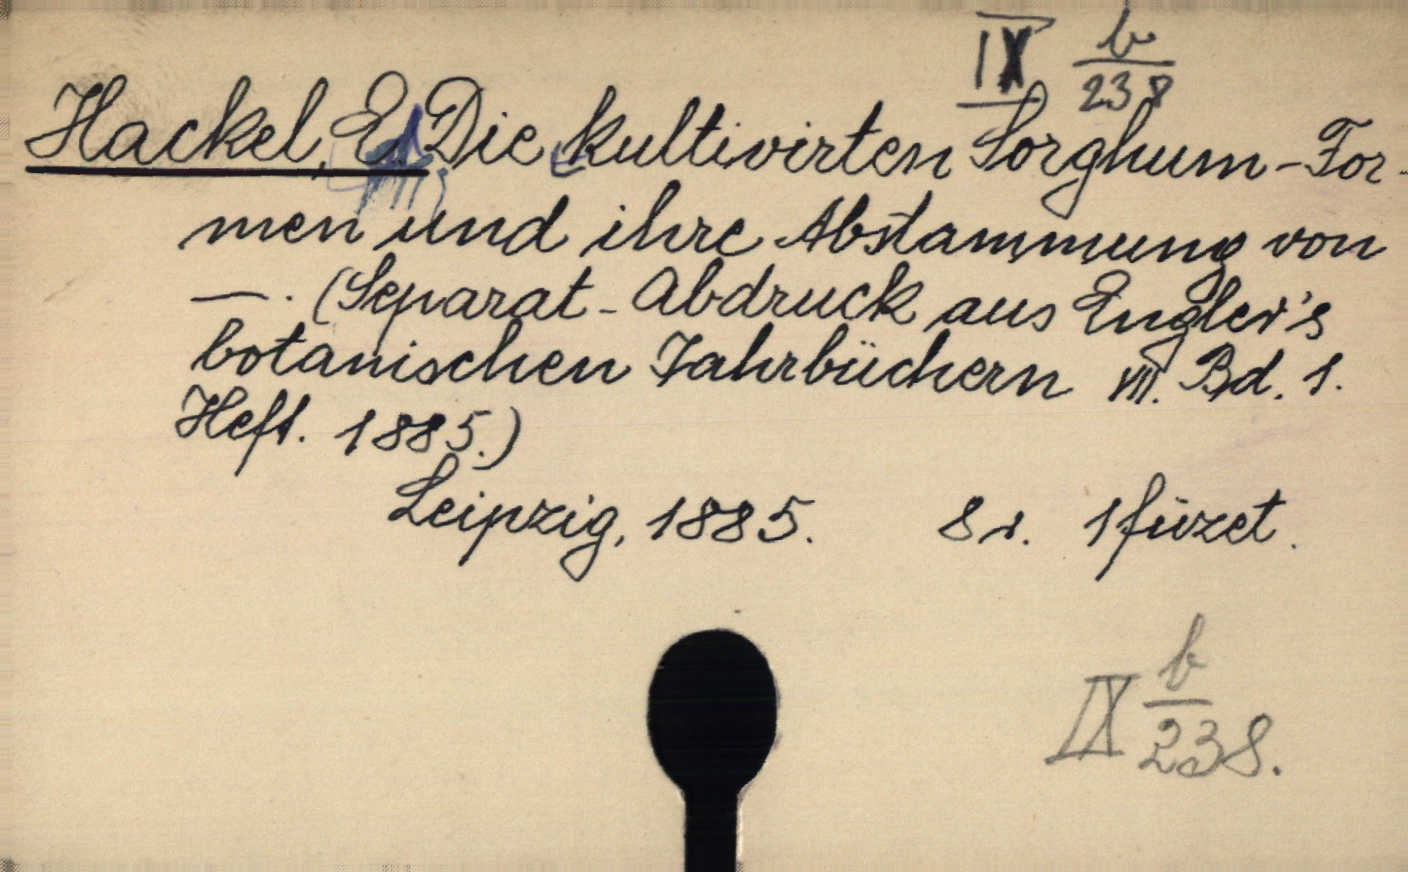 IX b/238
Hackel, E. Die kultivirten Sorghum-For-
men und ihre Abstammung von
—. (Separat-Abdruck aus Engler's
botanischen Jahrbüchern VII. Bd. 1.
Heft. 1885.)
Leipzig, 1885. 8r. 1 füzet.
IX b/238.